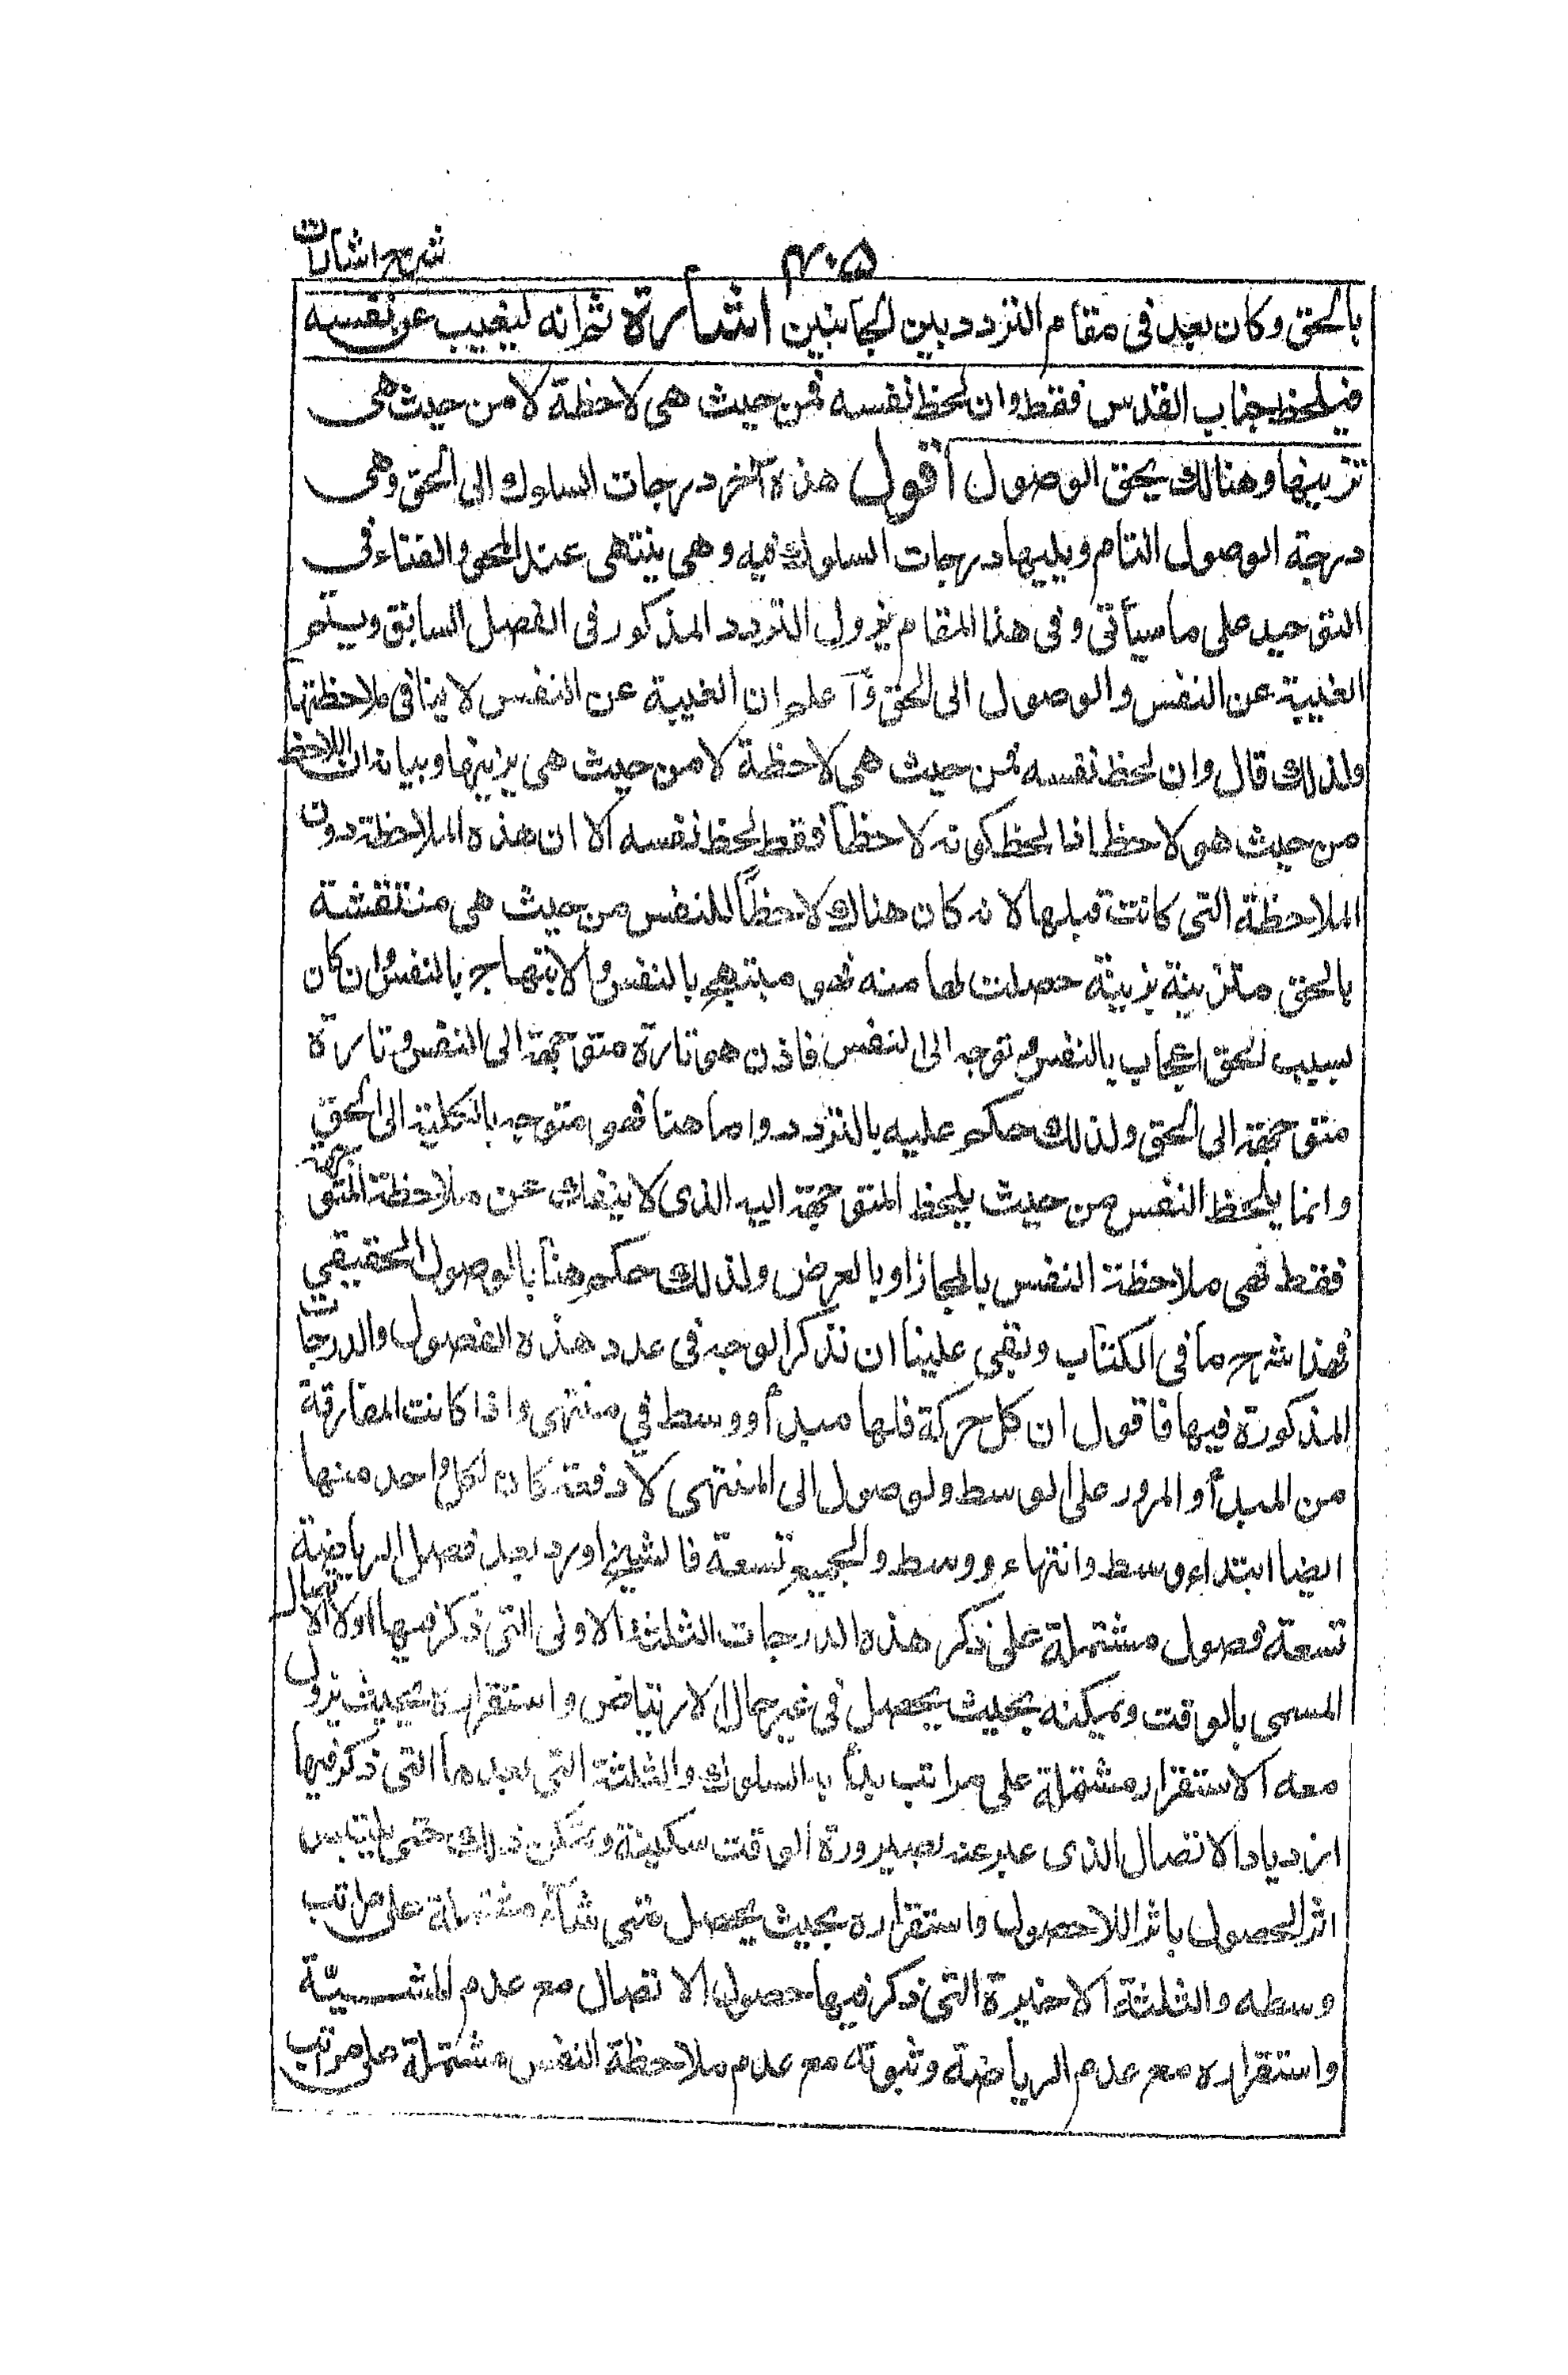 شرح اشارات
۴۰۵
بالحق وكان بعد فى مقام التردد بين الجانبين اشارة ثم انه ليغيب عن نفسه
فيلحظ جناب القدس فقط وان لحظ نفسه فمن حيث هى لاحظة لا من حيث هى
بزينتها وهنالك يحق الوصول اقول هذه آخر درجات السلوك الى الحق وهى
درجة الوصول التام ويليها درجات السلوك فيه وهى ينتهى عند المحو والفناء فى
التوحيد على ما سيأتى وفى هذا المقام يزول التردد المذكور فى الفصل السابق ويستمر
الغيبة عن النفس والوصول الى الحق وآعلم ان الغيبة عن النفس لا ينافى ملاحظتها
ولذلك قال وان لحظ نفسه فمن حيث هى لاحظة لا من حيث هى بزينتها وبيانه ان اللاحظ
من حيث هو لاحظ اذا لحظ كونه لاحظاً فقط لحظ نفسه الا ان هذه الملاحظة دون
الملاحظة التى كانت قبلها لانه كان هناك لاحظاً للنفس من حيث هى منتقشة
بالحق متزينة بزينة حصلت لها منه فهو مبتهج بالنفس والابتهاج بالنفس وان كان
بسبب الحق اعجاب بالنفس وتوجه الى النفس فاذن هو تارة متوجهة الى النفس وتارة
متوجهة الى الحق ولذلك حكم عليه بالتردد واما هنا فهو متوجه بالكلية الى الحق
وانما يلحظ النفس من حيث يلحظ المتوجهة اليه الذى لا ينفك عن ملاحظة المتوجهة
فقط فهى ملاحظة النفس بالمجاز او بالعرض ولذلك حكم هنا بالوصول الحقيقي
فهذا شرح ما فى الكتاب وبقى علينا ان نذكر الوجه فى عدد هذه الفصول والدرجات
المذكورة فيها فاقول ان كل حركة فلها مبدأ ووسط في منتهى واذا كانت المفارقة
من المبدأ والمرور على الوسط ولوصول الى المنتهى لا دفعة كان لكل واحد منها
ايضا ابتداء وسط وانتهاء ووسط والجميع تسعة فالشيخ اورد بعد فصل الرياضة
تسعة فصول مشتملة على ذكر هذه الدرجات الثلثة الاولى التى ذكر فيها اولا الاتصال
المسمى بالوقت وتمكنه بحيث يحصل فى غير حال الارتياض واستقراره بحيث يزول
معه الاستقرار مشتملة على مراتب بدأ به السلوك والثلثة التى بعدها التى ذكر فيها
ازدياد الاتصال الذى عبر عنه بصيرورة الوقت سكينة وتمكن ذلك حتى يلتبس
اثر الحصول باثر اللاحصول واستقراره بحيث يحصل متى شآء مشتملة على مراتب
وسطه والثلثة الاخيرة التى ذكر فيها حصول الاتصال مع عدم المشيّة
واستقراره مع عدم الرياضة وثبوته مع عدم ملاحظة النفس مشتملة على مراتب